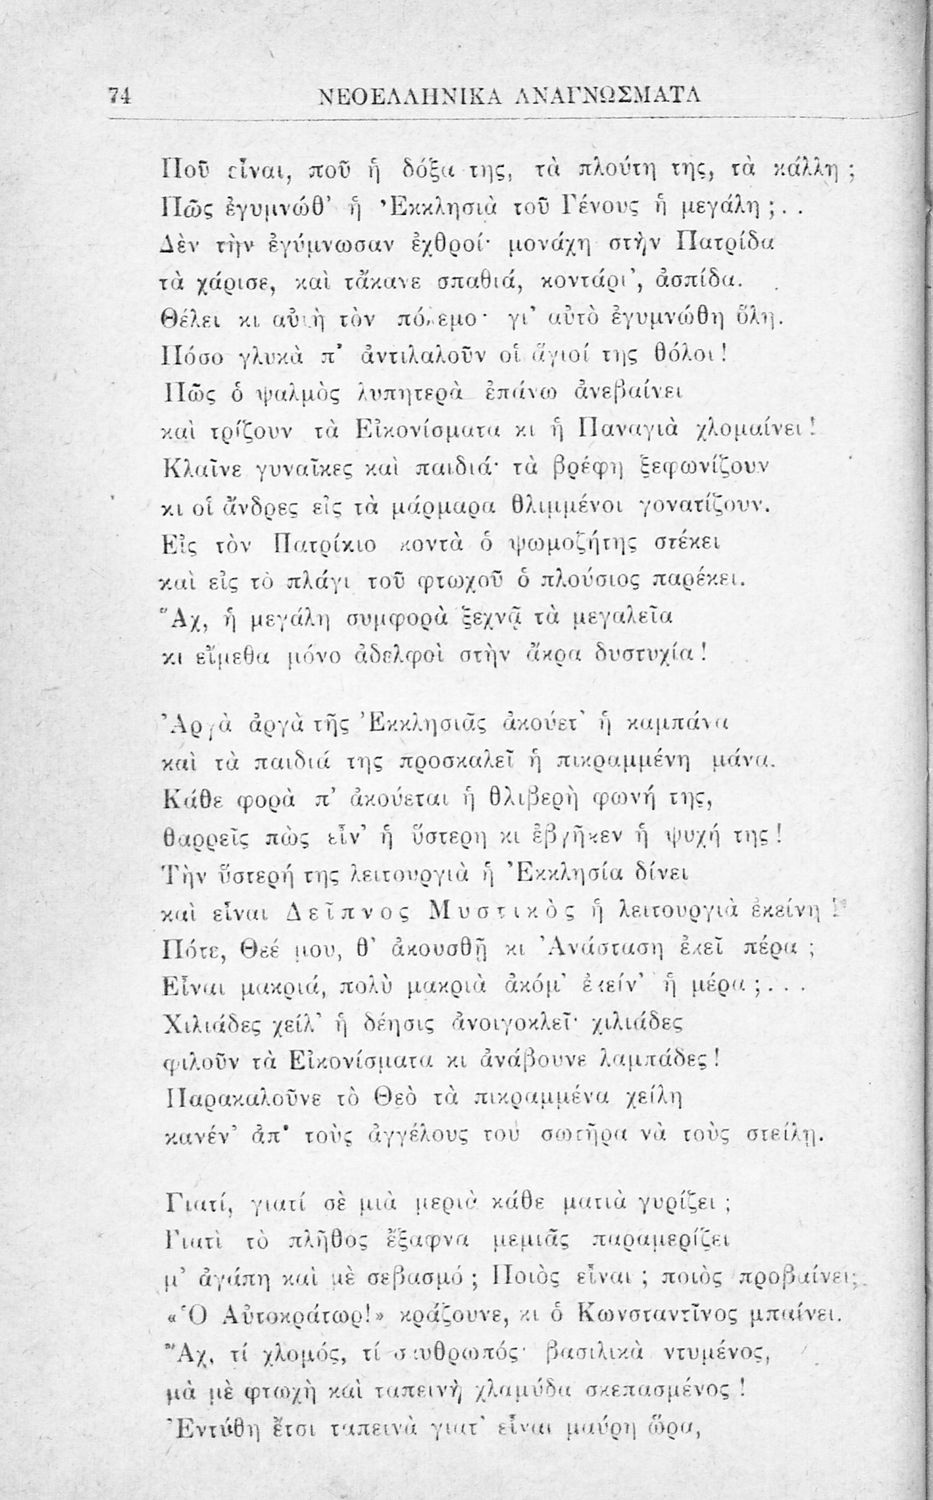 74 ΝΕΟΕΛΛΗΝΙΚΑ ΑΝΑΓΝΩΣΜΑΤΑ
Ποῦ εἶναι, ποῦ ἡ δόξα της, τὰ πλούτη της, τὰ κάλλη ;
Πῶς ἐγυμνώθ’ ἡ Ἐκκλησιὰ τοῦ Γένους ἡ μεγάλη ;. .
Δὲν τὴν ἐγύμνωσαν ἐχθροί· μονάχη στὴν Πατρίδα
τὰ χάρισε, καὶ τἄκανε σπαθιά, κοντάρι’, ἀσπίδα.
Θέλει κι αὐτὴ τὸν πόλεμο· γι’ αὐτὸ ἐγυμνώθη ὅλη.
Πόσο γλυκὰ π’ ἀντιλαλοῦν οἱ ἅγιοί της θόλοι !
Πῶς ὁ ψαλμὸς λυπητερὰ ἐπάνω ἀνεβαίνει
καὶ τρίζουν τὰ Εἰκονίσματα κι ἡ Παναγιὰ χλομαίνει !
Κλαῖνε γυναῖκες καὶ παιδιά· τὰ βρέφη ξεφωνίζουν
κι οἱ ἄνδρες εἰς τὰ μάρμαρα θλιμμένοι γονατίζουν.
Εἰς τὸν Πατρίκιο κοντὰ ὁ ψωμοζήτης στέκει
καὶ εἰς τὸ πλάγι τοῦ φτωχοῦ ὁ πλούσιος παρέκει.
Ἄχ, ἡ μεγάλη συμφορὰ ξεχνᾷ τὰ μεγαλεῖα
κι εἴμεθα μόνο ἀδελφοὶ στὴν ἄκρα δυστυχία !

Ἀργὰ ἀργὰ τῆς Ἐκκλησιᾶς ἀκούετ’ ἡ καμπάνα
καὶ τὰ παιδιά της προσκαλεῖ ἡ πικραμμένη μάνα.
Κάθε φορὰ π’ ἀκούεται ἡ θλιβερὴ φωνή της,
θαρρεῖς πὼς εἶν’ ἡ ὕστερη κι ἐβγῆκεν ἡ ψυχή της !
Τὴν ὕστερή της λειτουργιὰ ἡ Ἐκκλησία δίνει
καὶ εἶναι Δεῖπνος Μυστικὸς ἡ λειτουργιὰ ἐκείνη !
Πότε, Θεέ μου, θ’ ἀκουσθῇ κι Ἀνάσταση ἐκεῖ πέρα ;
Εἶναι μακριά, πολὺ μακριὰ ἀκόμ’ ἐκείν’ ἡ μέρα ;. . .
Χιλιάδες χείλ’ ἡ δέησις ἀνοιγοκλεῖ· χιλιάδες
φιλοῦν τὰ Εἰκονίσματα κι ἀνάβουνε λαμπάδες !
Παρακαλοῦνε τὸ Θεὸ τὰ πικραμμένα χείλη
κανέν’ ἀπ’ τοὺς ἀγγέλους του σωτῆρα νὰ τοὺς στείλῃ.

Γιατί, γιατί σὲ μιὰ μεριὰ κάθε ματιὰ γυρίζει ;
Γιατὶ τὸ πλῆθος ἔξαφνα μεμιᾶς παραμερίζει
μ’ ἀγάπη καὶ μὲ σεβασμό ; Ποιὸς εἶναι ; ποιὸς προβαίνει;
«Ὁ Αὐτοκράτωρ!» κράζουνε, κι ὁ Κωνσταντῖνος μπαίνει.
Ἄχ, τί χλομός, τί σκυθρωπός· βασιλικὰ ντυμένος,
μὰ μὲ φτωχὴ καὶ ταπεινὴ χλαμύδα σκεπασμένος !
Ἐντύθη ἔτσι ταπεινὰ γιατ’ εἶναι μαύρη ὥρα,